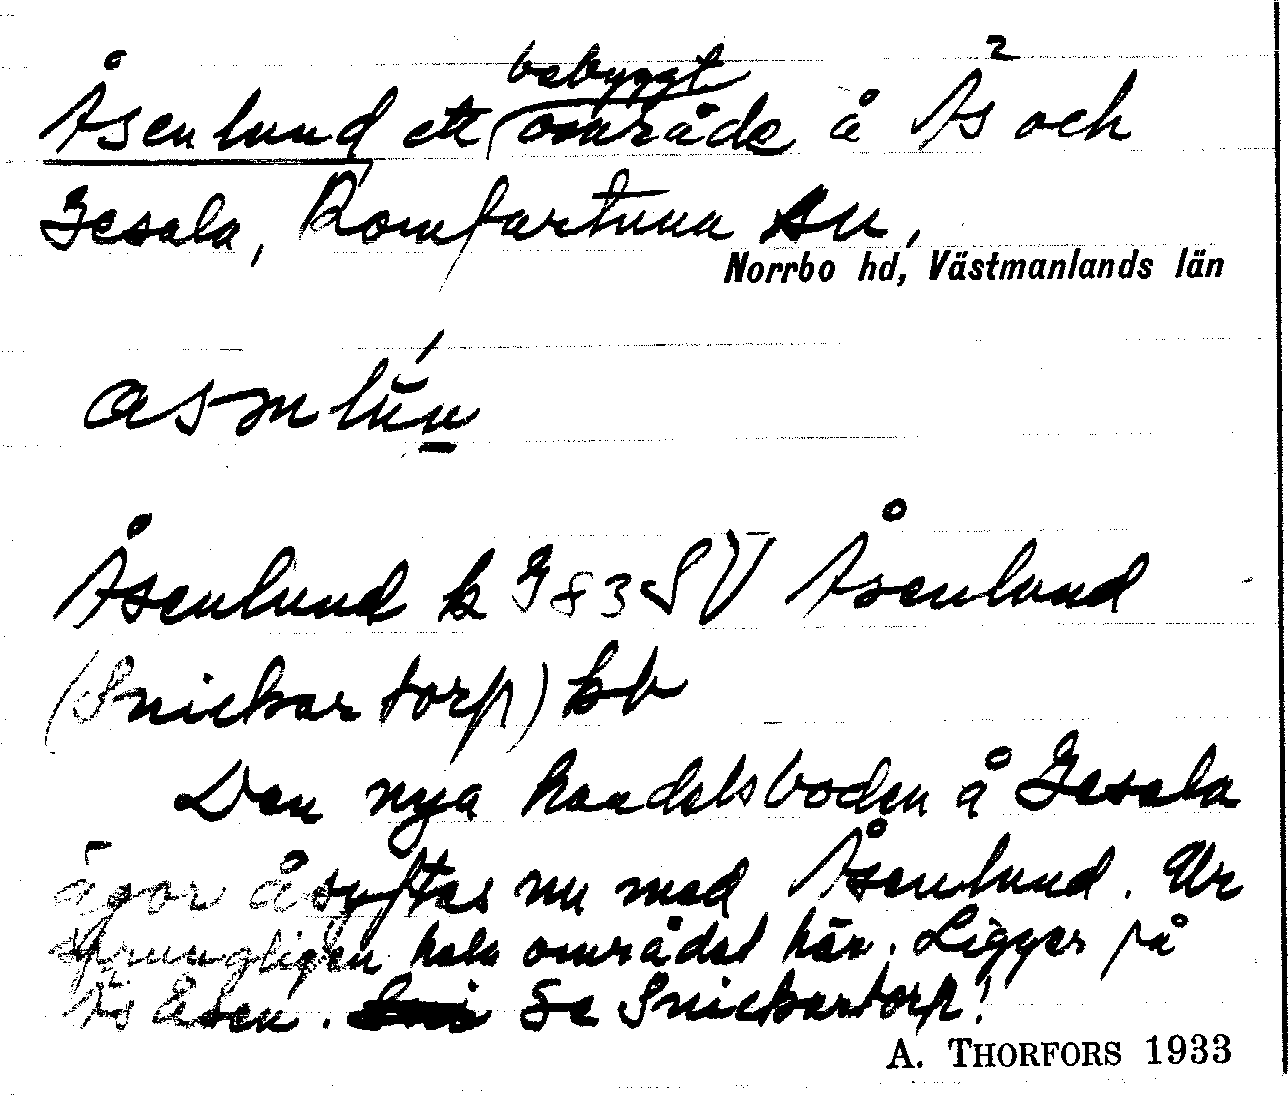 Åsenlund ett bebyggt område å Ås och
Gesala, Romfartuna sn,
Norrbo hd, Västmanlands län
Åsenlund k J 83 SV Åsenlund
(Snickartorp) kb
Den nya handelsboden å Gesala
ägor åsyftas nu med Åsenlund. Ur
sprungligen hela området här. Ligger på
Ås åsen. Se Snickartorp!
A. THORFORS 1933